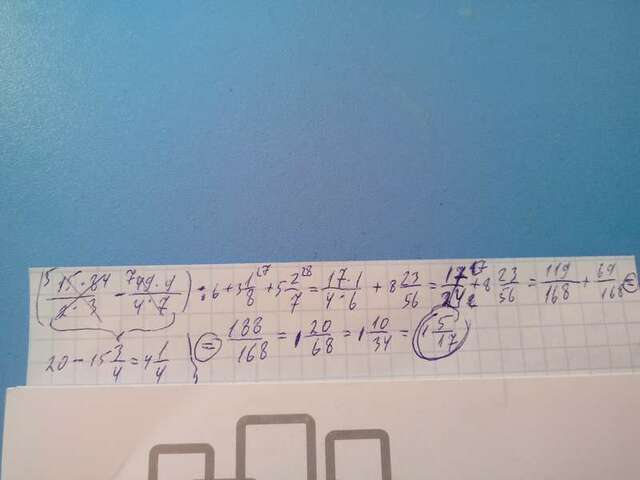 (⁵15·84/2·3 - ⁷49·9/4·7) : 6 + 3 1/8 + 5 2/7 = 17·1/4·6 + 8 23/56 = 17/24 + 8 23/56 = 119/168 + 69/168 =
20 - 15 3/4 = 4 1/4 = 188/168 = 1 20/68 = 1 10/34 = 1 5/17